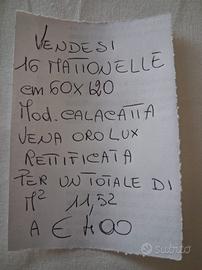 VENDESI
16 MATTONELLE
cm 60x120
MOD. CALACATTA
VENA ORO LUX
RETTIFICATA
PER UN TOTALE DI
M² 11,52
A € 400
subito